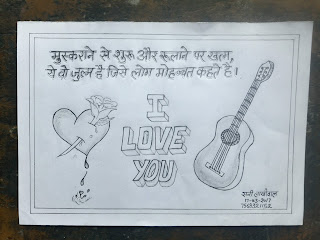 मुस्कराने से शुरु और रूलाने पर खत्म,
ये वो जुल्म है जिसे लोग मोहब्बत कहते है।
I
LOVE
YOU